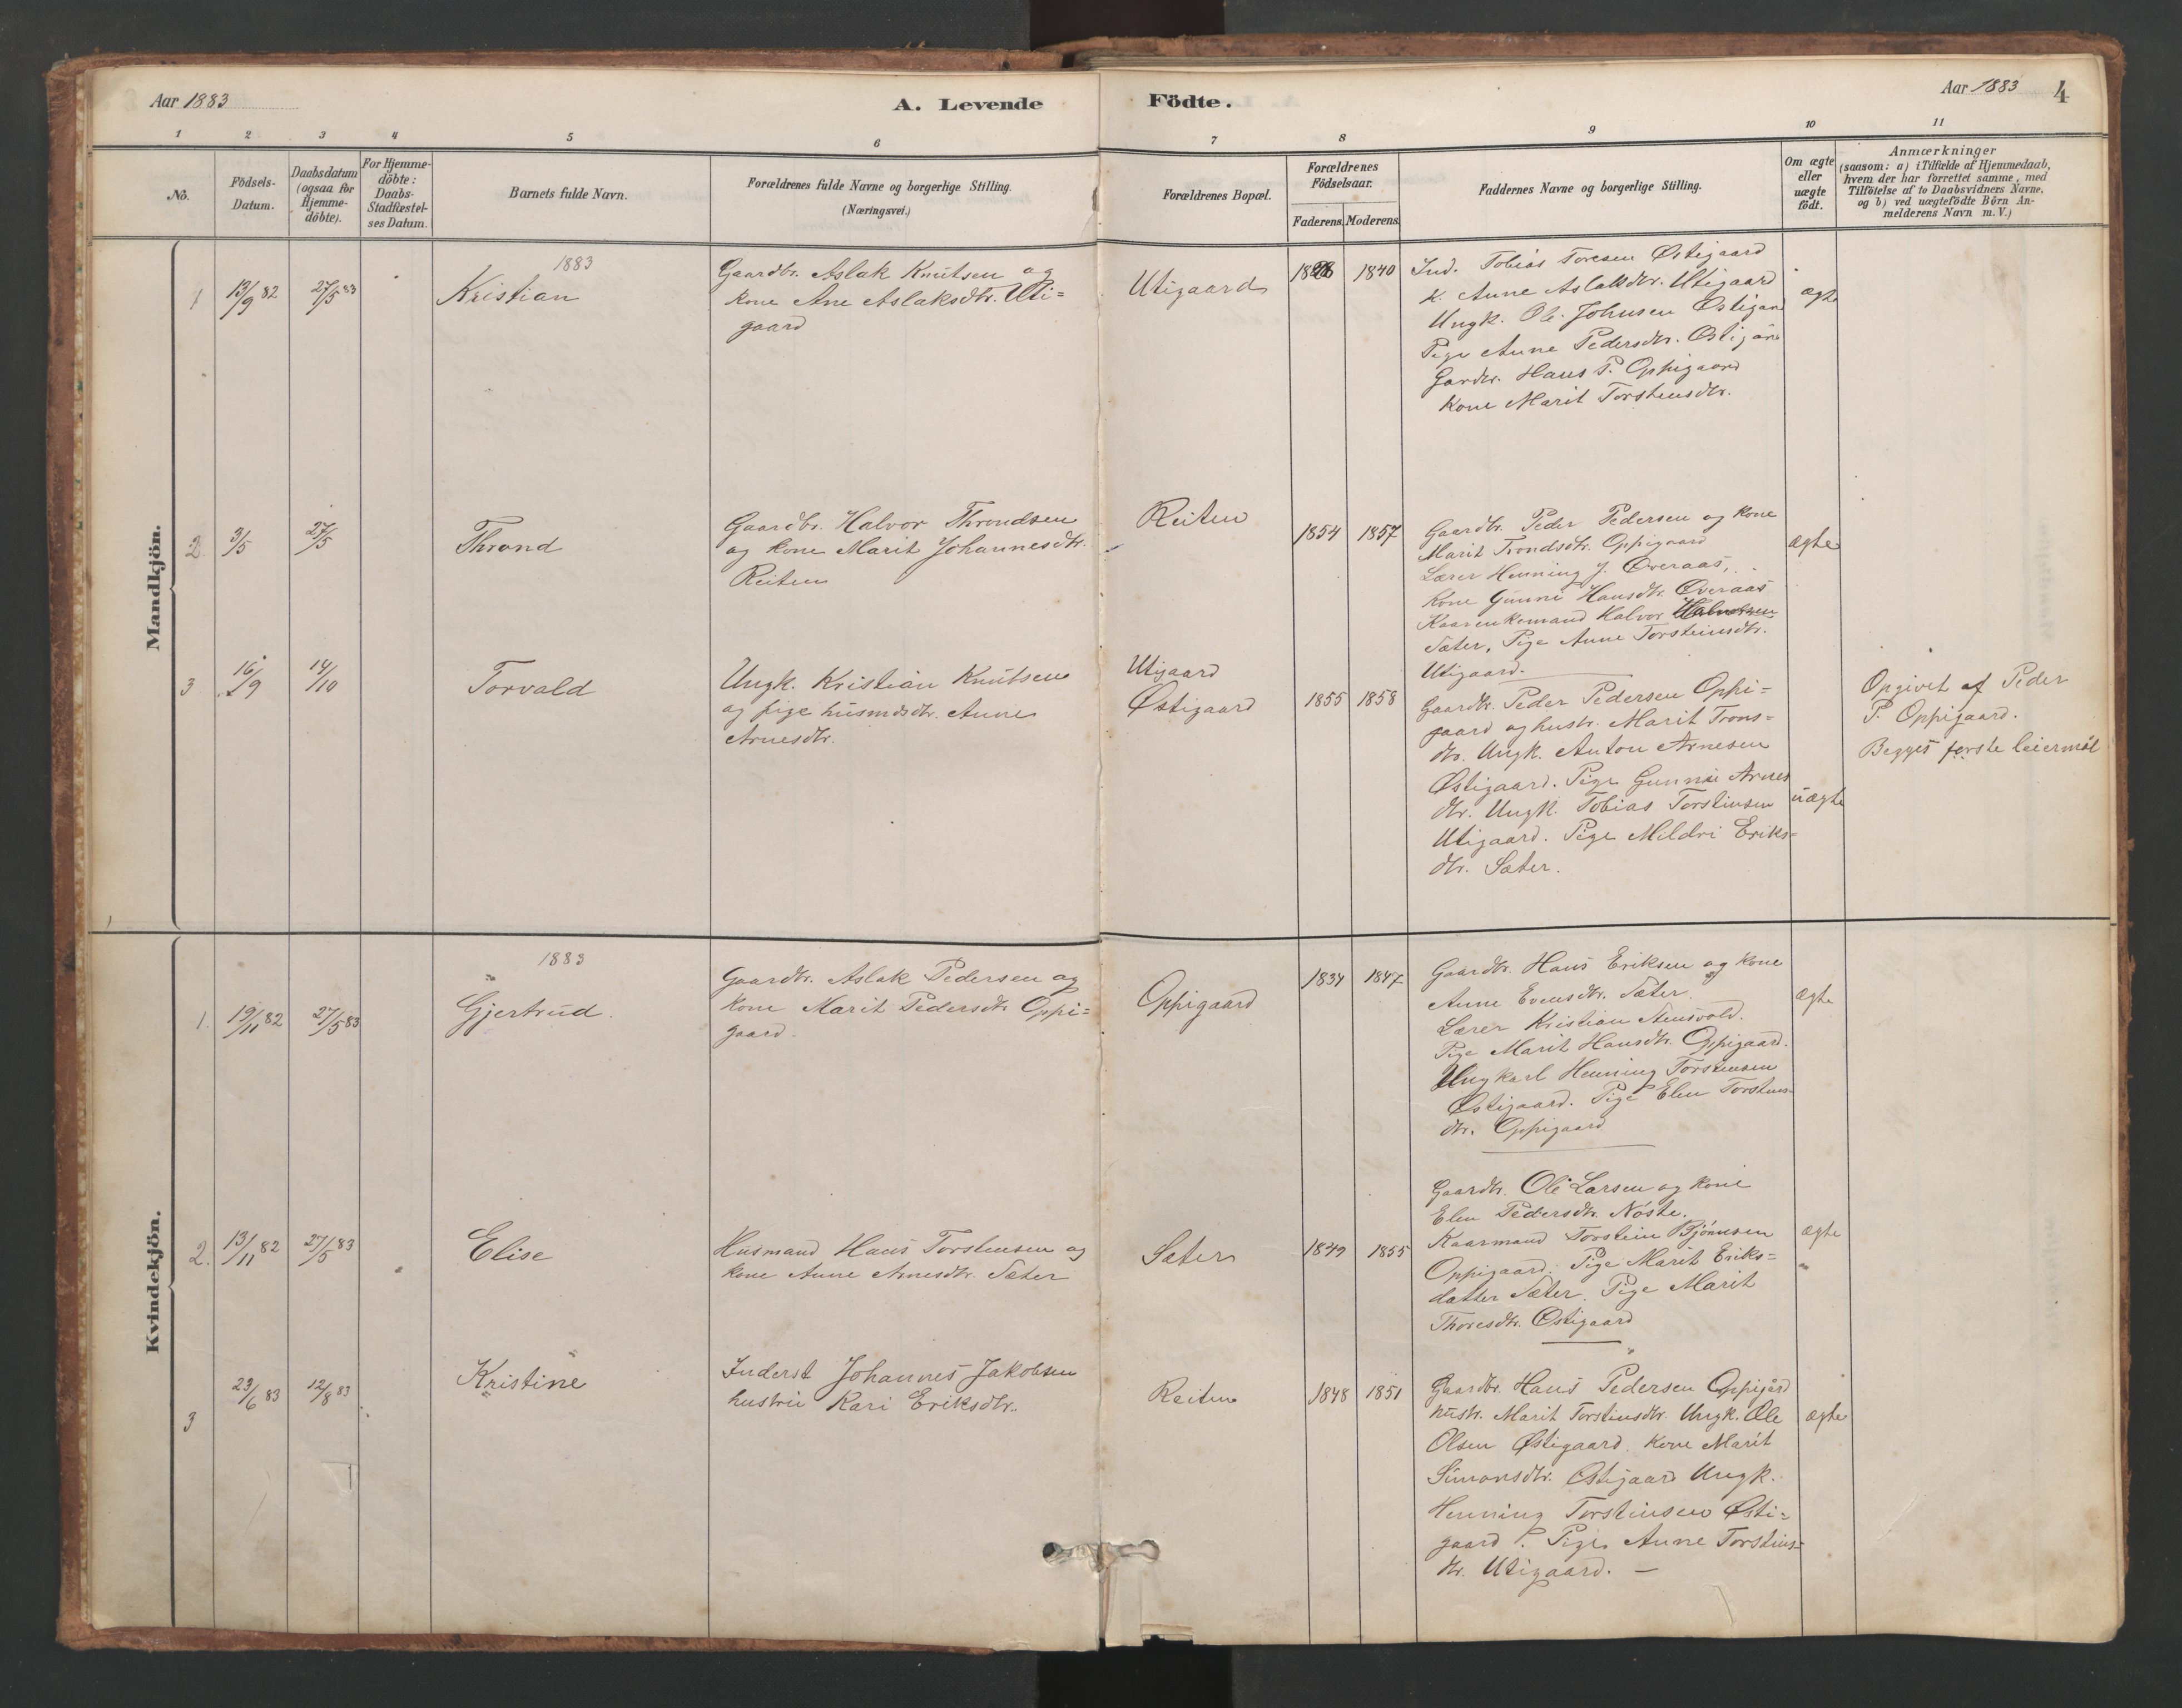 Aar 1883
A. Levende
Födte.
Aar 1883
4
1 2 3 4 5 6 7 8 9 10 11
No.
Födsels-
Datum.
Daabsdatum
(ogsaa for
Hjemme-
döbte).
For Hjemme-
döbte:
Daabs-
Stadfæstel-
ses Datum.
Barnets fulde Navn.
Forældrenes fulde Navne og borgerlige Stilling.
(Næringsvei.)
Forældrenes Bopæl.
Forældrenes
Födselsaar.
Faderens. Moderens.
Faddernes Navne og borgerlige Stilling.
Om ægte
eller
uægte
födt.
Anmærkninger
(saasom: a) i Tilfælde af Hjemmedaab,
hvem der har forrettet samme, med
Tilföielse af to Daabsvidners Navne.
og b) ved uægtefödte Börn An-
melderens Navn m. V.)
Mandkjön.
1883
1 13/9 82 27/5 83 Kristian
Gaardbr. Aslak Knutsen og
kone Ane Aslaksdtr. Uti=
gaard
Utigaard
1828 1840
Ind. Tobias Toresen Østigaard
k. Anne Aslaksdtr. Utigaard
Ungk. Ole Johnsen Østigard
Pige Anne Pedersdtr. Østigård
Gardbr. Hans P. Oppigaard
Kone Marit Torstensdtr.
ægte
2 3/5 27/5 Thrond
Gaardbr. Halvor Throndsen
og kone Marit Johannesdtr.
Reiten
Reiten
1854 1857
Gaardbr. Peder Pedersen og kone
Marit Trondsdtr. Oppigaard
Lærer Henning J. Øveraas,
Kone Gunni Hansdtr. Øveraas
Kaarenkemand Halvor Halvorsen
Sæter, Pige Anne Torsteinsdtr.
Utigaard.
ægte
3 16/9 14/10 Torvald
Ungk. Kristian Knutsen
og pige husmdsdtr. Anne
Arnesdtr.
Utigaard
Østigaard
1855 1858
Gaardbr. Peder Pedersen Oppi=
gaard og hustr. Marit Trons=
dtr. Ungk. Anton Arnesen
Østigaard. Pige Gunnie Arnes
dtr. Ungk. Tobias Torstensen
Utigaard. Pige Mildri Eriks=
dtr. Sæter.
uægte
Opgivet af Peder
P. Oppigaard.
Begges første leiermål
Kvindekjön.
1883
1. 19/11 82 27/5 83 Gjertrud.
Gaardbr. Aslak Pedersen og
kone Marit Pedersdtr. Oppi=
gaard.
Oppigaard
1834 1847
Gaardbr. Hans Eriksen og kone
Anne Evensdtr. Sæter
Lærer Kristian Stensvold.
Pige Marit Hansdtr. Oppigaard.
Ungkarl Henning Torstensen
Østigaard. Pige Elen Torstens-
dtr. Oppigaard
ægte
2. 13/11 82 27/5 83 Elise
Husmand Hans Torstensen og
kone Anne Arnesdtr. Sæter
Sæter
1849 1855
Gaardbr. Ole Larsen og kone
Elen Pedersdtr. Nøste.
Kaarmand Torstein Bjørnsen
Oppigaard. Pige Marit Eriks=
datter Sæter. Pige Marit
Thoresdtr. Østigaard
ægte
3 23/6 83 12/8 83 Kristine
Inderst Johannes Jakobsen
hustru Kari Eriksdtr.
Reiten
1848 1851
Gaardbr. Hans Pedersen Oppigård
hustr. Marit Torstinsdtr. Ungk. Ole
Olsen Østigaard. Kone Marit
Simonsdtr. Østigaard Ungk.
Henning Torstinsen Østi=
gaard. Pige Anne Torstins=
dtr. Utigaard. –
ægte